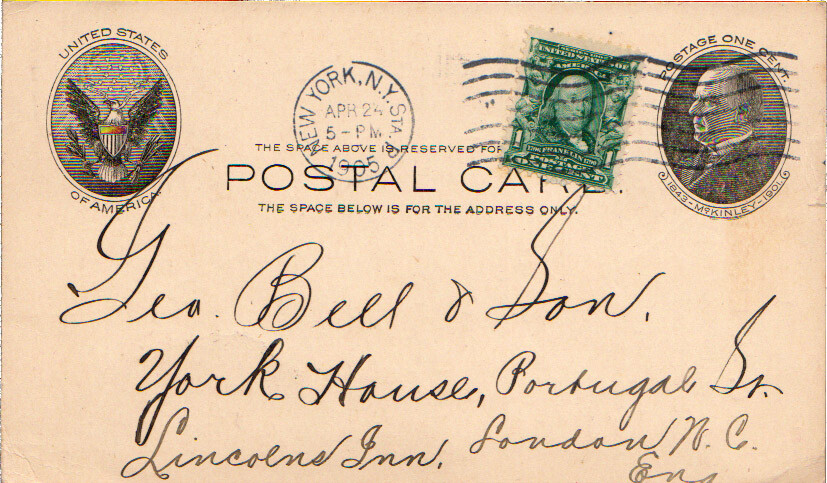 UNITED STATES
OF AMERICA
NEW YORK, N.Y. STA.
APR 24
5-PM
1905
UNITED STATES OF
AMERICA
1706 FRANKLIN 1790
1 1
ONE CENT
POSTAGE ONE CENT.
1843-McKINLEY-1901
THE SPACE ABOVE IS RESERVED FOR
POSTAL CARD.
THE SPACE BELOW IS FOR THE ADDRESS ONLY.
Geo. Bell & Son.
York House, Portugal St.
Lincolns Inn, London W. C.
Eng